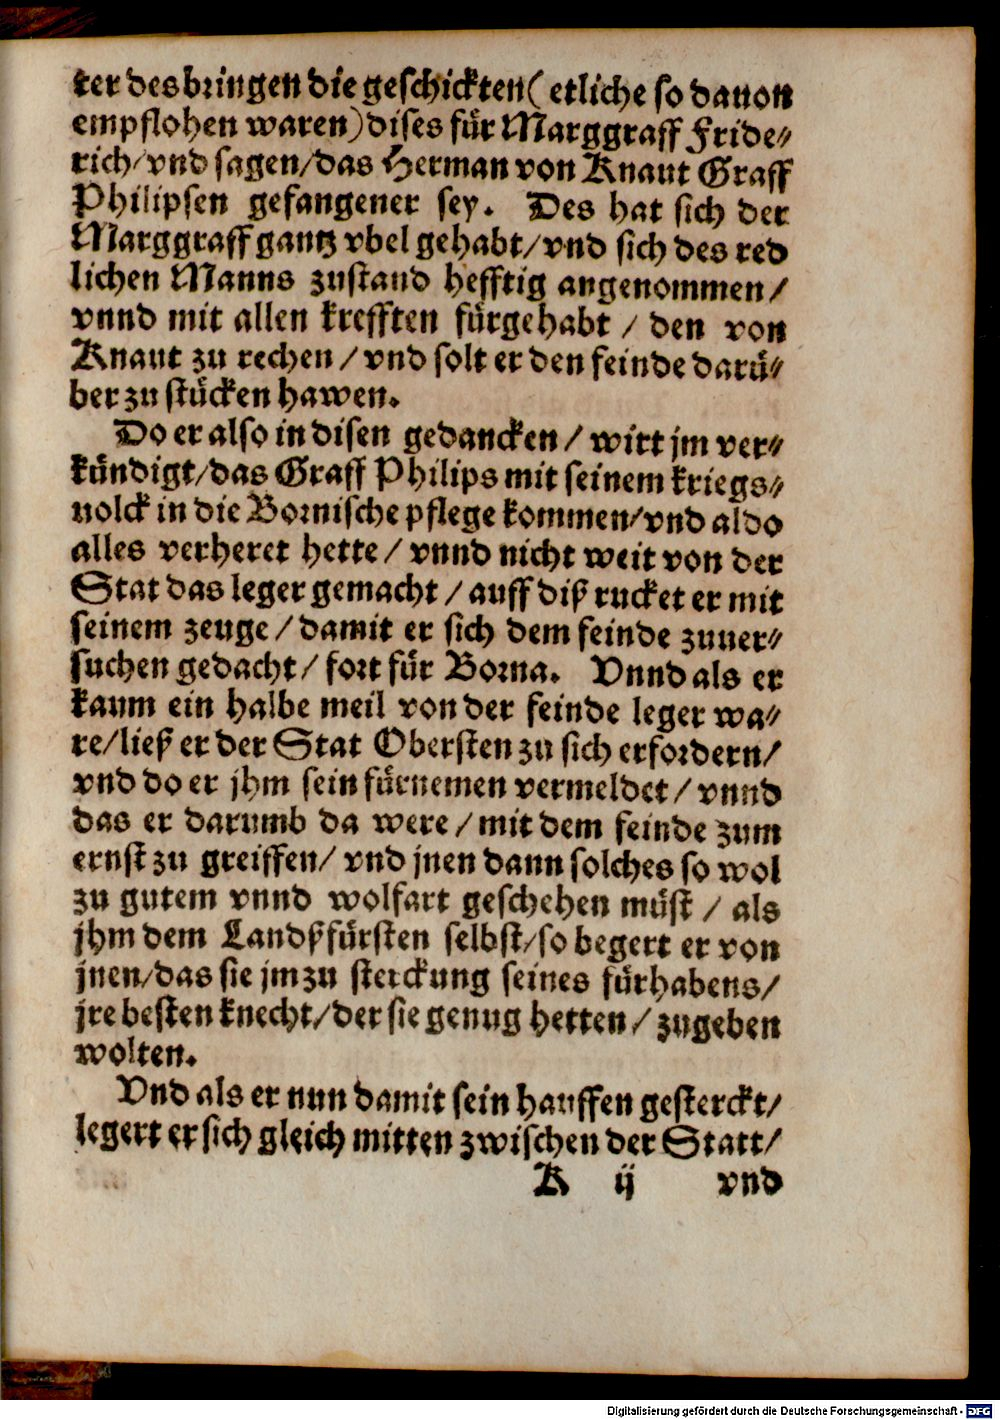 ter des bringen die geschickten ( etliche so dauon
empflohen waren) dises für Marggraff Fride⸗
rich/vnd sagen/das Herman von Knaut Graff
Philipsen gefangener sey. Des hat sich der
Marggraff gantz vbel gehabt/vnd sich des red
lichen Manns zustand hefftig angenommen/
vnnd mit allen krefften fürgehabt / den von
Knaut zu rechen / vnd solt er den feinde darü⸗
ber zu stücken hawen.
Do er also in disen gedancken / wirt jm ver⸗
kündigt/das Graff Philips mit seinem kriegs⸗
uolck in die Bornische pflege kommen/vnd aldo
alles verheret hette / vnnd nicht weit von der
Stat das leger gemacht / auff diß rucket er mit
seinem zeuge / damit er sich dem feinde zuuer⸗
suchen gedacht / fort für Borna. Vnnd als er
kaum ein halbe meil von der feinde leger wa⸗
re/ließ er der Stat Obersten zu sich erfordern/
vnd do er jhm sein fürnemen vermeldet / vnnd
das er darumb da were / mit dem feinde zum
ernst zu greiffen/ vnd jnen dann solches so wol
zu gutem vnnd wolfart geschehen müst / als
jhm dem Landßfürsten selbst/so begert er von
jnen/das sie jm zu sterckung seines fürhabens/
jre besten knecht/der sie genug hetten / zugeben
wolten.
Vnd als er nun damit sein hauffen gesterckt/
legert er sich gleich mitten zwischen der Statt/
K ij vnd
Digitalisierung gefördert durch die Deutsche Forschungsgemeinschaft - DFG